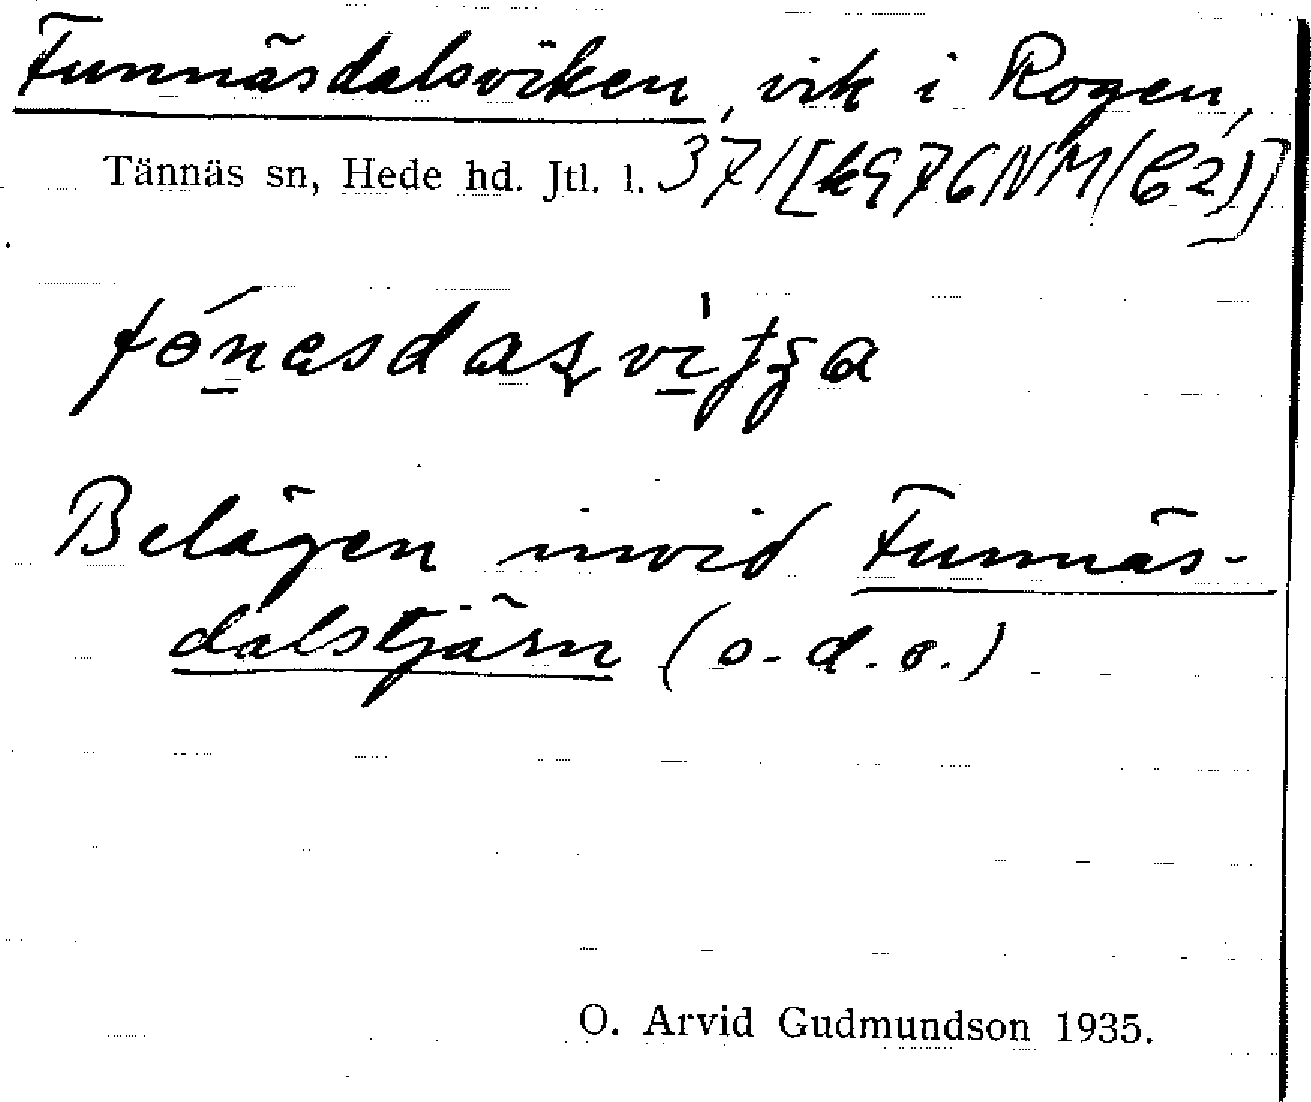 Funnäsdalsviken, vik i Rogen,
Tännäs sn, Hede hd. Jtl. l. 371
Belägen invid Funnäs-
dalstjärn (o.d.o.)
O. Arvid Gudmundson 1935.